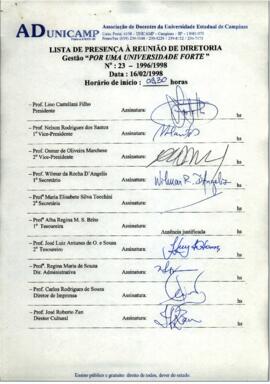 ADUNICAMP
Associação de Docentes da Universidade Estadual de Campinas
LISTA DE PRESENÇA À REUNIÃO DE DIRETORIA
Gestão "POR UMA UNIVERSIDADE FORTE"
Nº : 23 - 1996/1998
Data : 16/02/1998
Horário de início : 0930 horas
- Prof. Lino Castellani Filho Assinatura:
Presidente hs
- Prof. Nelson Rodrigues dos Santos Assinatura:
1º Vice-Presidente hs
- Prof. Osmar de Oliveira Marchese Assinatura:
2º Vice-Presidente hs
- Prof. Wilmar da Rocha D'Angelis Assinatura: Wilmar R. D'Angelis
1º Secretário hs
- Profª Maria Elisabete Silva Tocchini Assinatura:
2ª Secretária hs
- Profª Alba Regina M. S. Brito Assinatura:
1ª Tesoureira Ausência justificada hs
- Prof. José Luiz Antunes de O. e Sousa Assinatura:
2º Tesoureiro hs
- Profª. Regina Maria de Souza Assinatura:
Dir. Administrativa hs
- Prof. Carlos Rodrigues de Souza Assinatura:
Diretor de Imprensa hs
- Prof. José Roberto Zan Assinatura:
Diretor Cultural hs
Ensino público e gratuito: direito de todos, dever do estado.